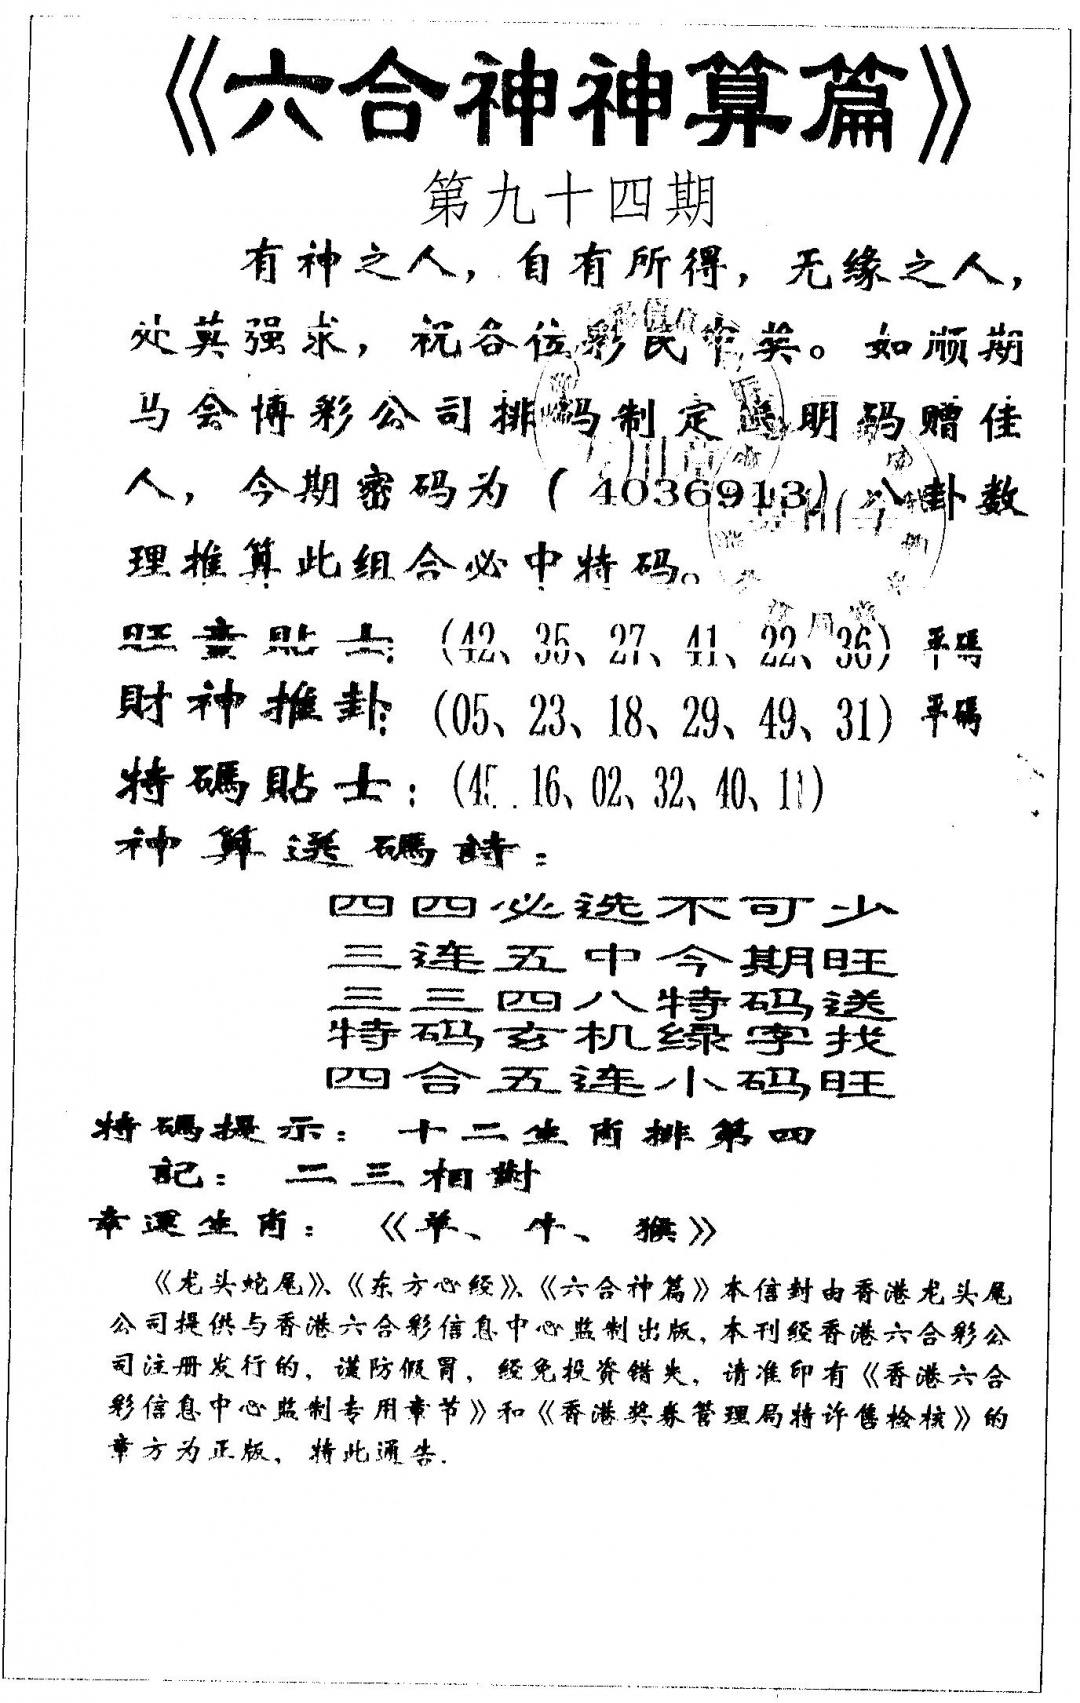 《六合神神算篇》
第九十四期
有神之人，自有所得，无缘之人，
处莫强求，祝各位彩民中奖。如顺期
马会博彩公司排码制定 明码赠佳
人，今期密码为（4036913）八卦数
理推算此组合必中特码。
旺童貼士：（42、35、27、41、22、36）平碼
財神推卦：（05、23、18、29、49、31）平碼
特碼貼士：（45 16、02、32、40、11）
神算选碼詩：
四四必选不可少
三连五中今期旺
三三四八特码送
特码玄机绿字找
四合五连小码旺
特碼提示：十二生肖排第四
記：二三相對
幸運生肖：《羊、牛、猴》
《龙头蛇尾》、《东方心经》、《六合神篇》本信封由香港龙头尾
公司提供与香港六合彩信息中心监制出版，本刊经香港六合彩公
司注册发行的，谨防假冒，经免投资错失，请准印有《香港六合
彩信息中心监制专用章节》和《香港奖券管理局特许售检核》的
章方为正版，特此通告.